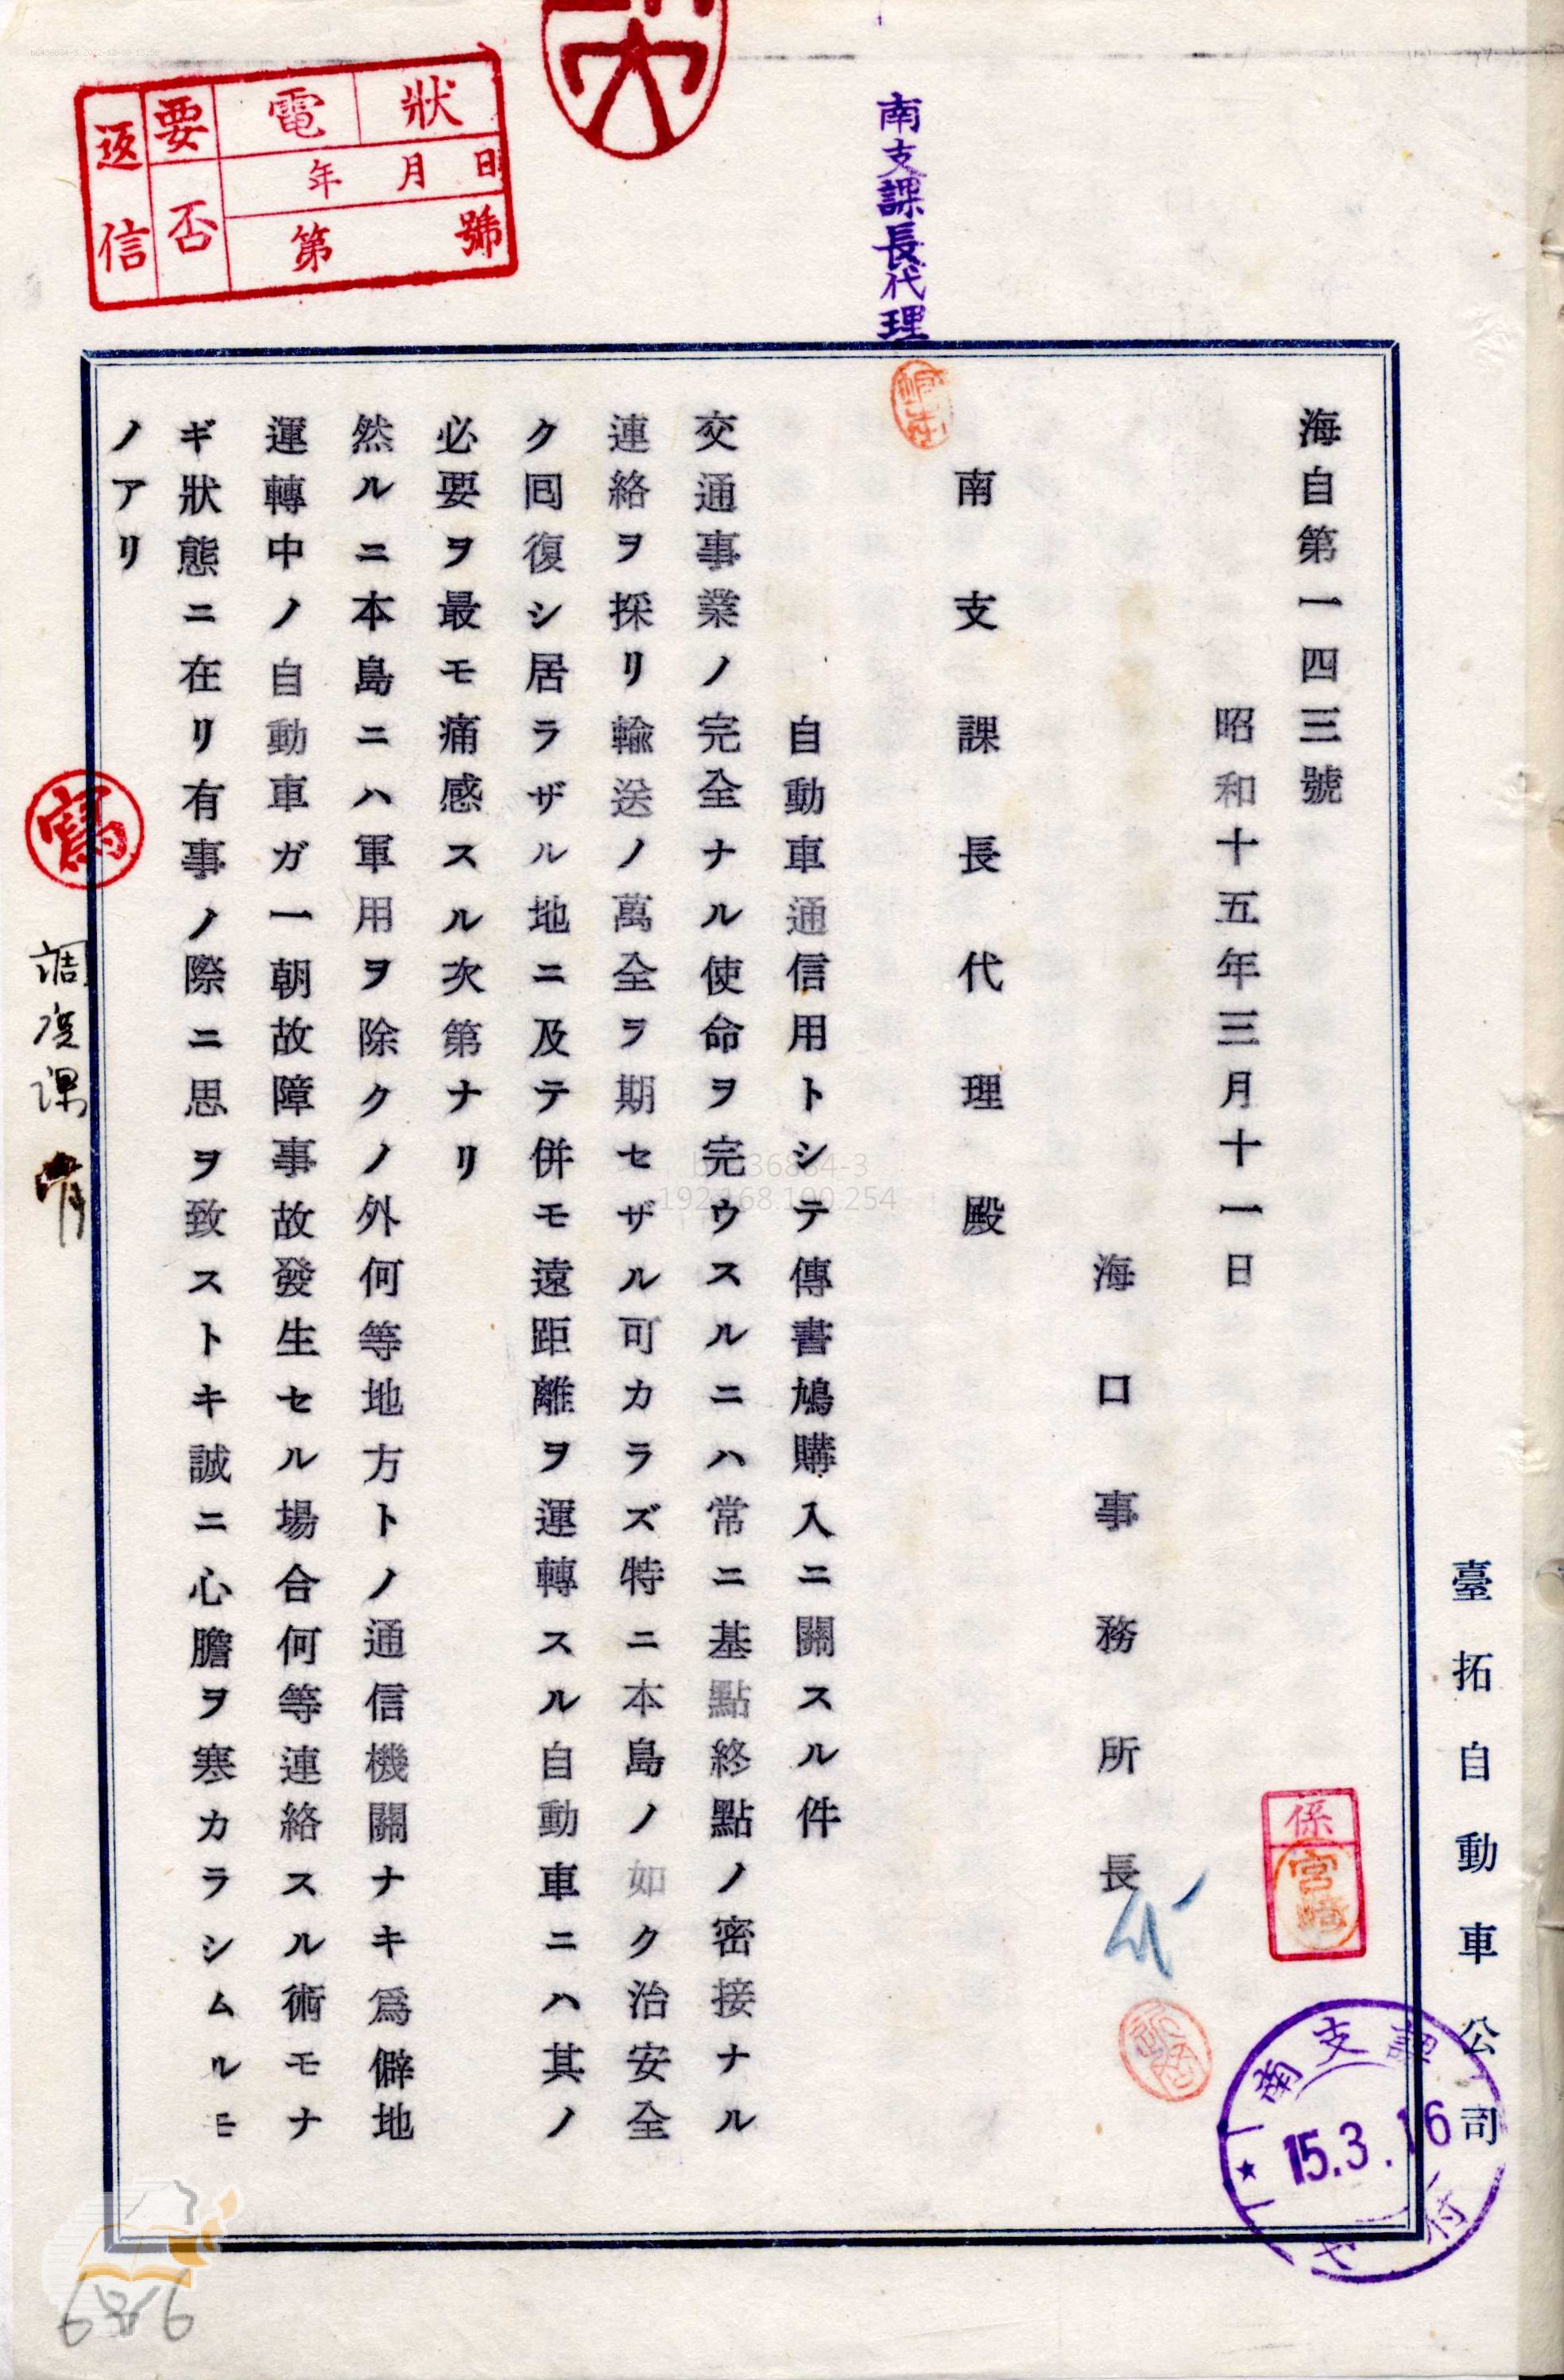 臺拓自動車公司
海自第一四三號
昭和十五年三月十一日
海口事務所長
南支課長代理殿
自動車通信用トシテ傳書鳩購入ニ關スル件
交通事業ノ完全ナル使命ヲ完ウスルニハ常ニ基點終點ノ密接ナル
連絡ヲ採リ輸送ノ萬全ラ期セザル可カラズ特ニ本島ノ如ク治安全
ク囘復シ居ラザル地ニ及テ併モ遠距離ヲ運轉スル自動車ニハ其ノ
必要ヲ最モ痛感スル次第ナリ
然ルニ本島ニハ軍用ヲ除クノ外何等地方トノ通信機關ナキ爲僻地
運轉中ノ自動車ガ一朝故障事故發生セル場合何等連絡スル術モナ
ギ狀態ニ在リ有事ノ際ニ思ヲ致ストキ誠ニ心膽ヲ寒カラシムルモ
ノアリ
南支課長代理
狀電
年月日
第號
要否
返信
係
宮崎
南支課
15.3.16
寫
調度課
b0436884-3
192.168.100.254